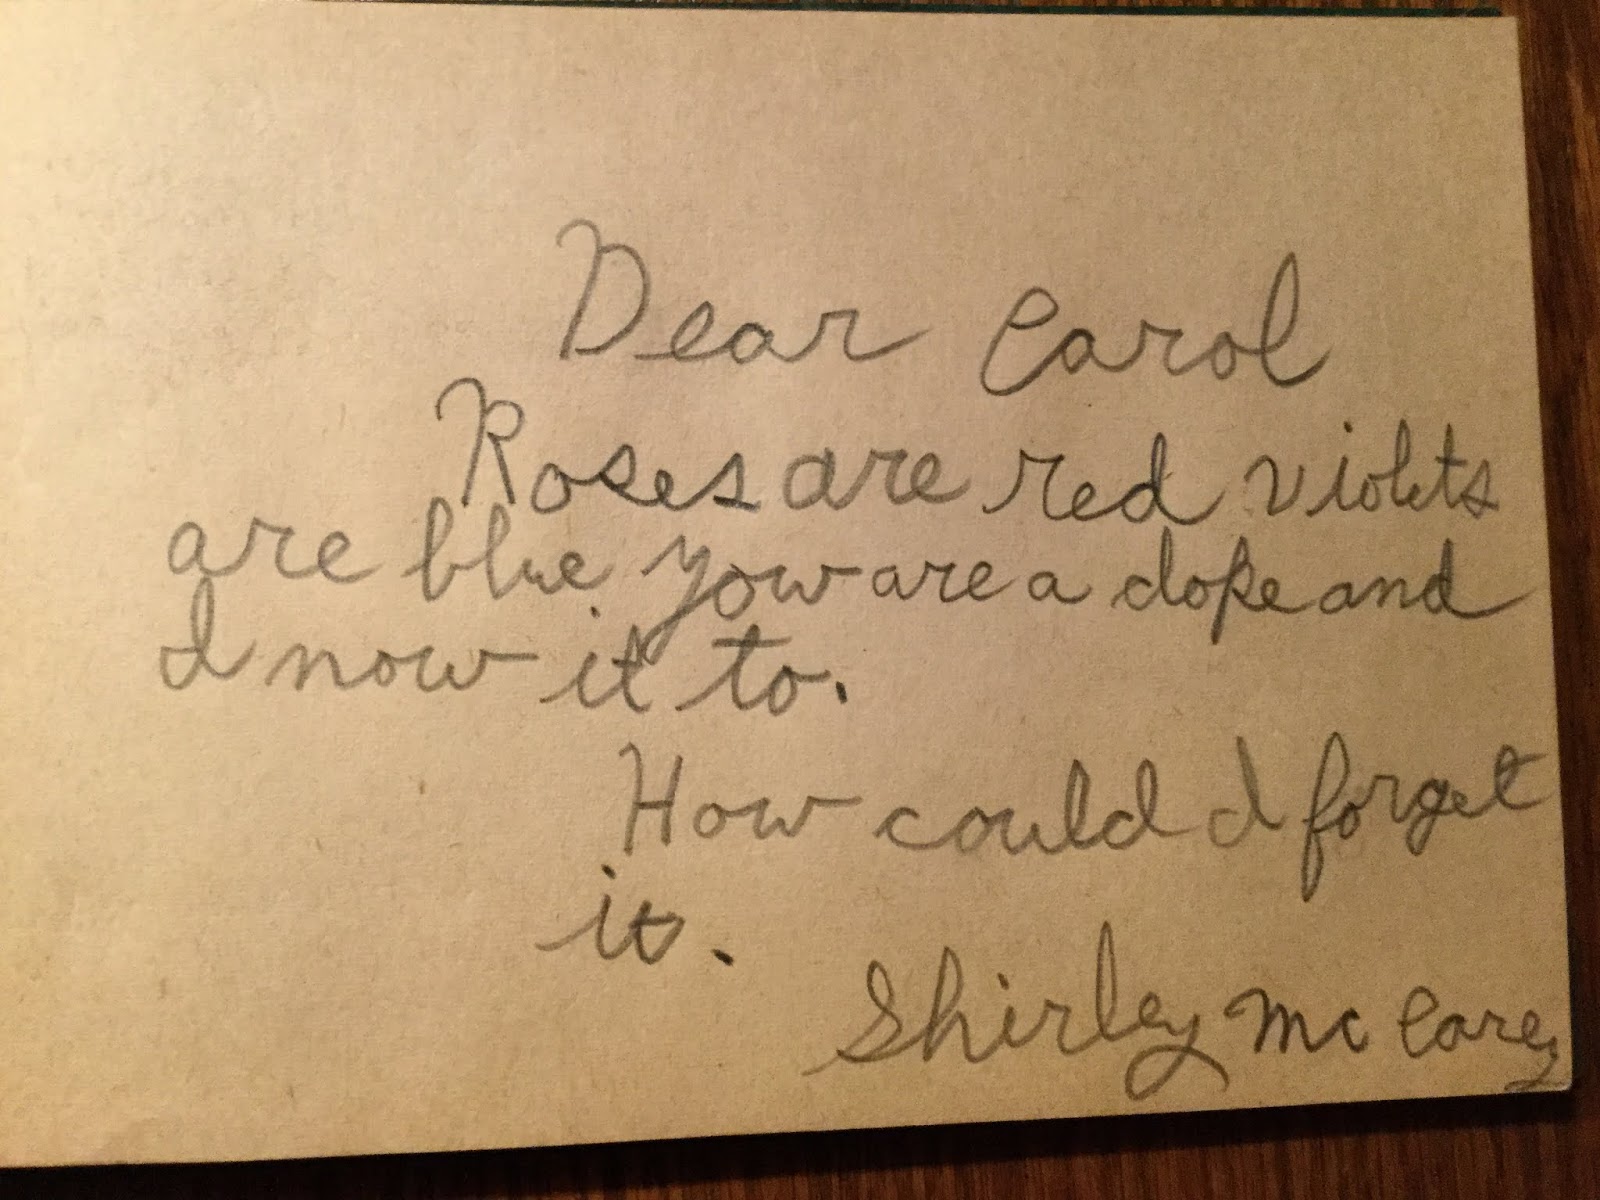 Dear Carol
Roses are red violets
are blue you are a dope and
I now it to.
How could I forget
it.
Shirley Mc Carey